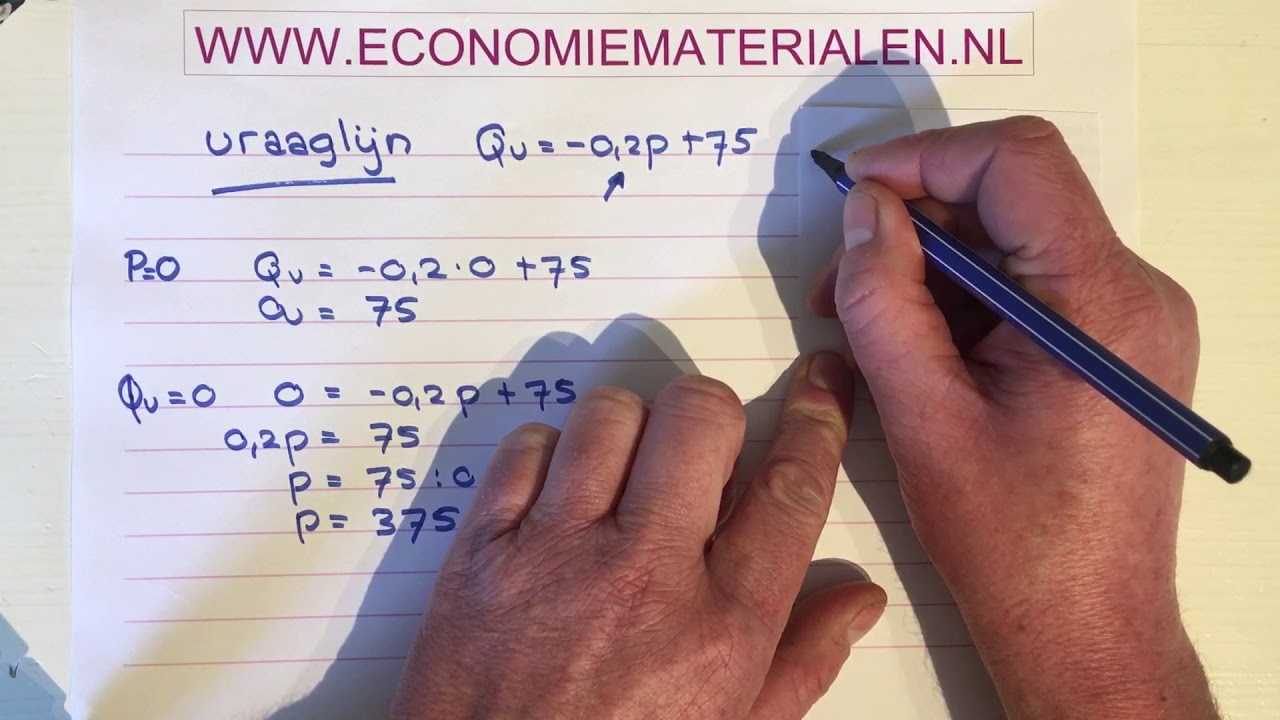 WWW.ECONOMIEMATERIALEN.NL
vraaglijn Qv = -0,2p + 75
P=0 Qv = -0,2 · 0 + 75
Qv = 75
Qv = 0 0 = -0,2p + 75
0,2p = 75
p = 75 : 0
p = 375